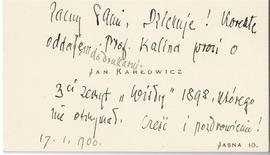 Zacny Panie, Dziękuję! Korektę
oddałem do drukarni. Prof. Kalina prosi o
JAN KARŁOWICZ
3ci zeszyt „Wisły” 1898, którego
nie otrzymał. Cześć i pozdrowienie!
17.1.900.
JASNA 10.